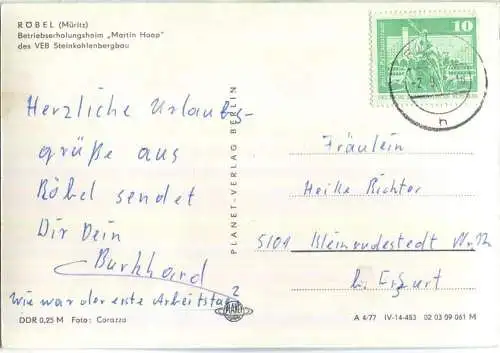 RÖBEL (Müritz)
Betriebserholungsheim „Martin Hoop"
des VEB Steinkohlenbergbau
10
Herzliche Urlaubs-
grüße aus
Röbel sendet
Dir Dein
Burkhard
Wie war der erste Arbeitstag?
PLANET-VERLAG BERLIN
Fräulein
Heike Richter
5101 Kleinrudestedt Nr.
b. Erfurt
PLANET
DDR 0,25 M Foto: Corazza
A 4/77 IV-14-483 02 03 09 061 M